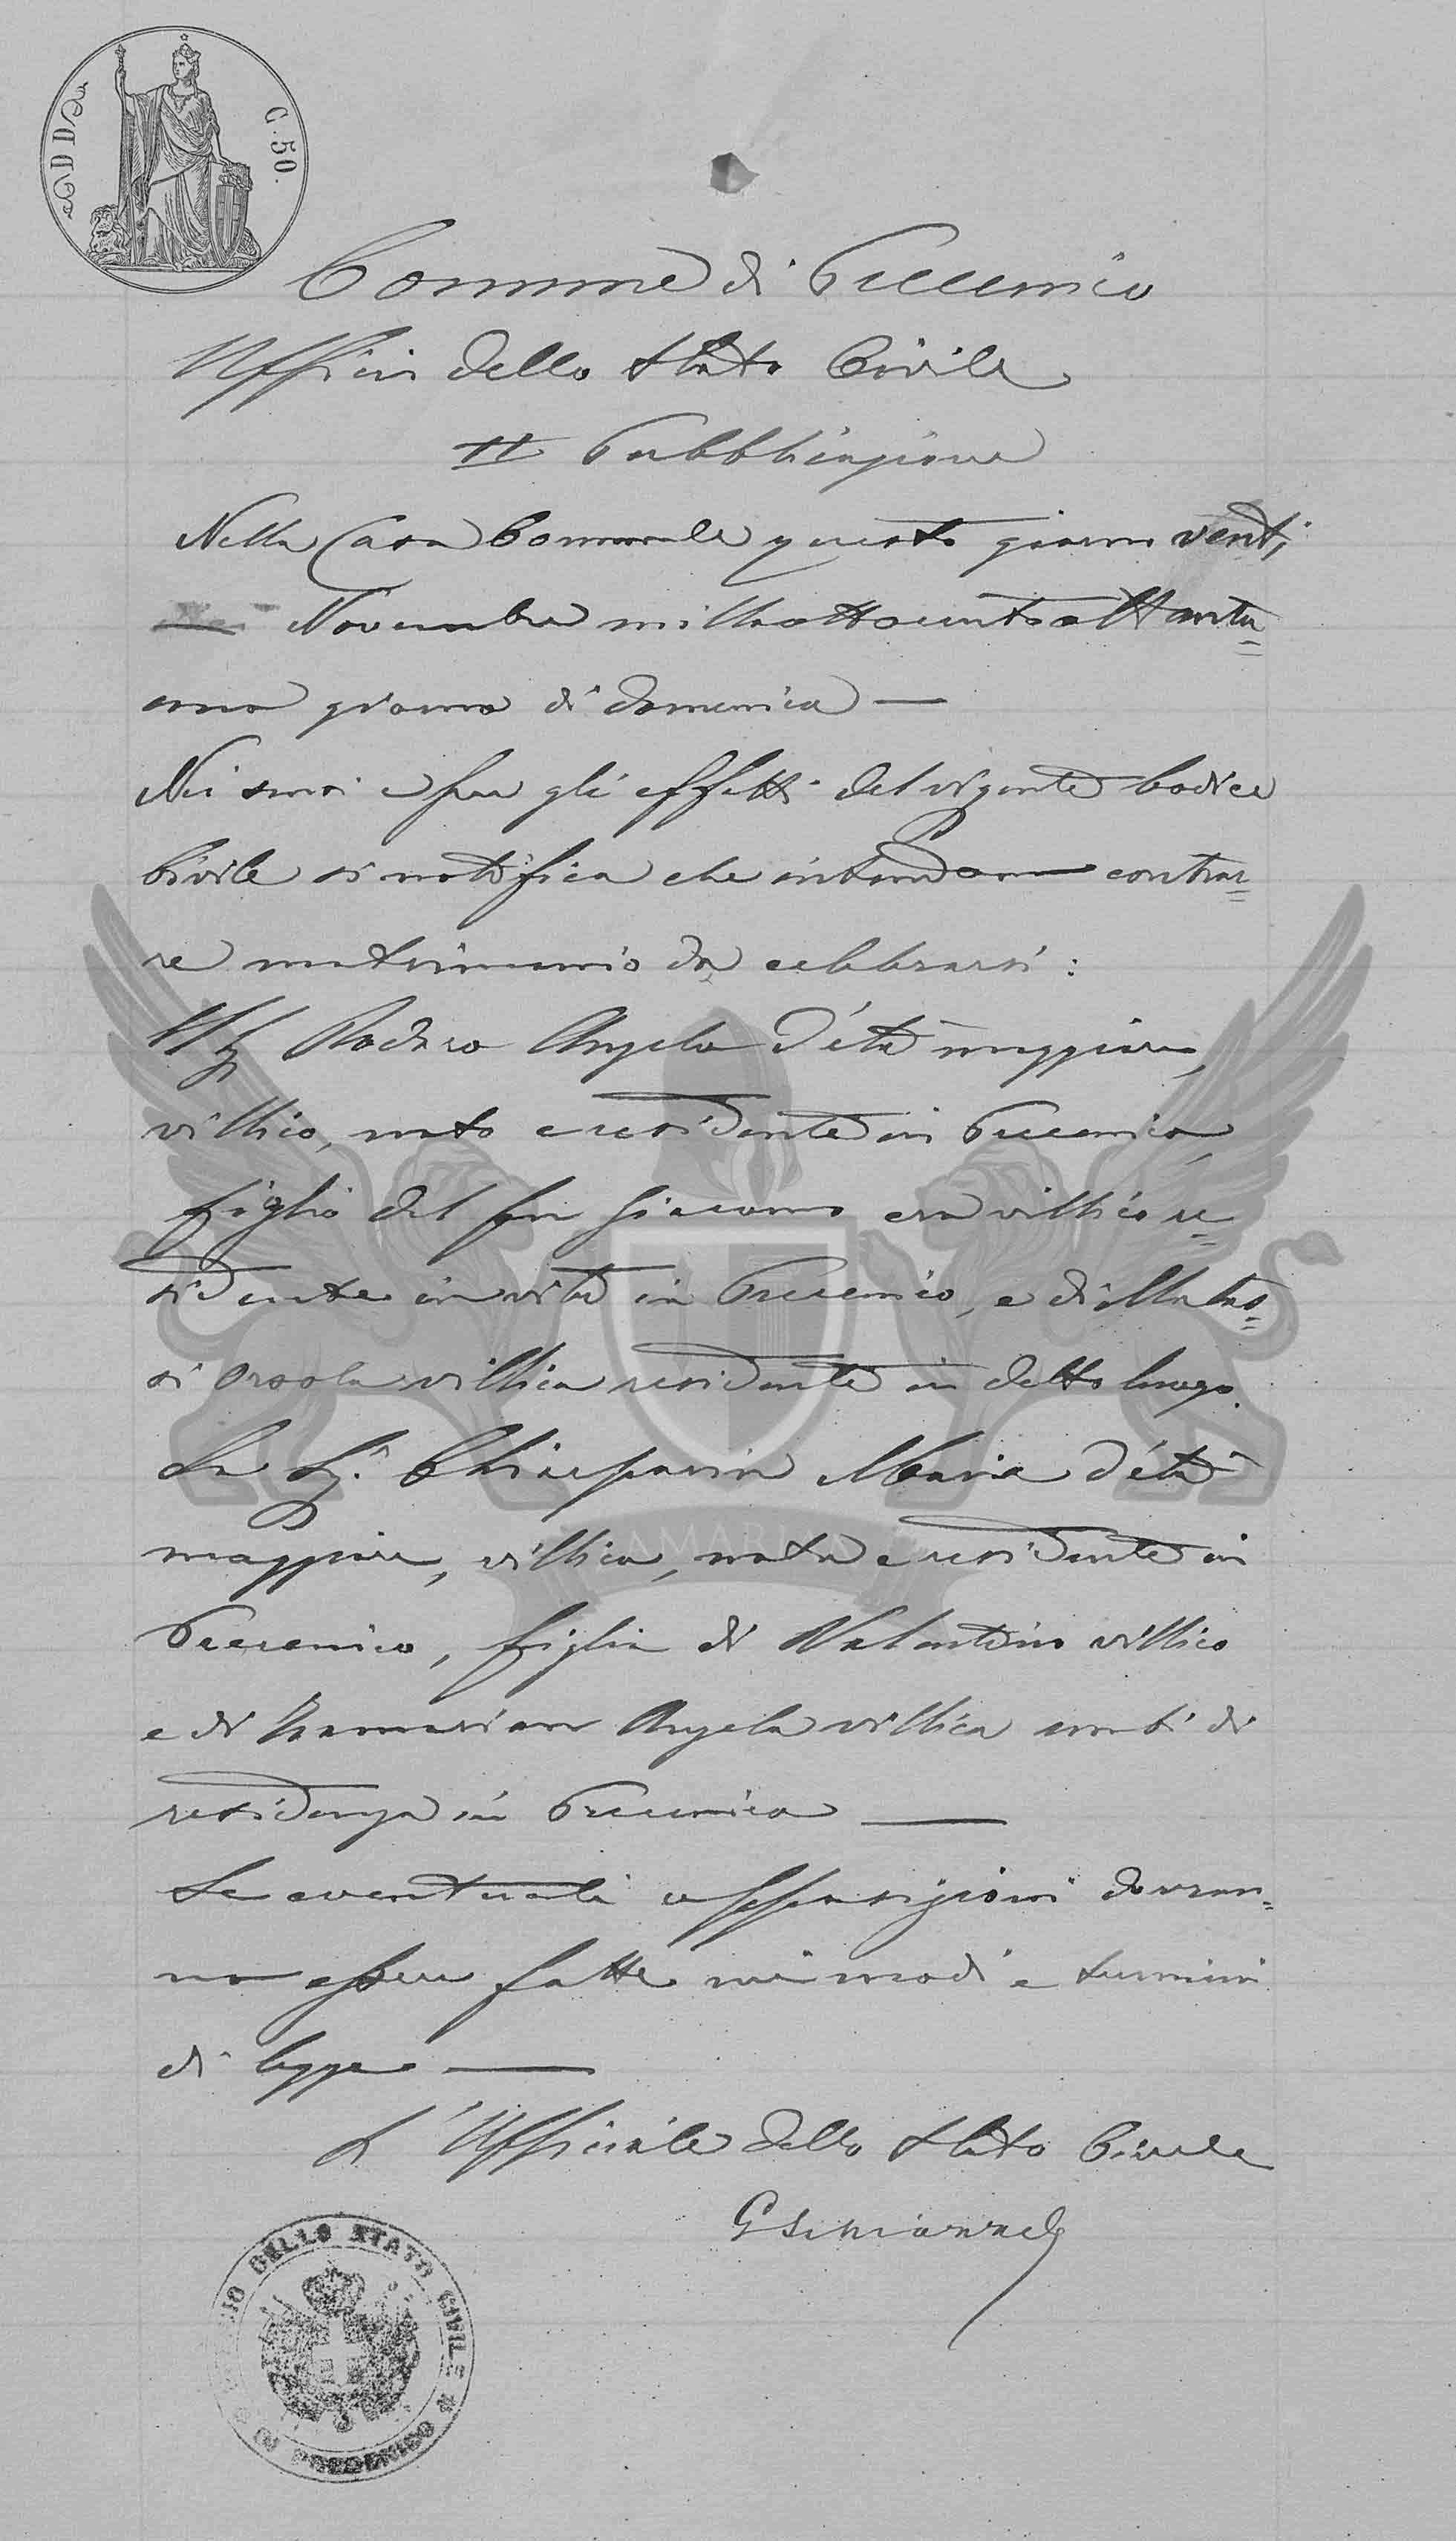 C. 50.
Comune di Precenico
Ufficio dello Stato Civile
II Pubblicazione
Nella Casa Comunale questo giorno venti
Novembre milleottocentoottanta=
uno giorno di domenica —
Nei sensi e per gli effetti del vigente Codice
Civile si notifica che intendono contrar=
re matrimonio da celebrarsi:
Il Sig. Rodaro Angelo d'età maggiore,
villico, nato e residente in Precenico,
figlio del fu Giacomo era villico re=
sidente in vita in Precenico, e di
si Orsola villica residente in detto luogo.
La Sig.ª Maria d'età
maggiore, villica, nata e residente in
Precenico, figlia di Valentino villico
e di Angela villica ambi di
residenza in Precenico —
Le eventuali opposizioni dovran=
no essere fatte nei modi e termini
di legge —
L'Ufficiale dello Stato Civile
UFFICIO DELLO STATO CIVILE * DI PRECENICO
AMARI